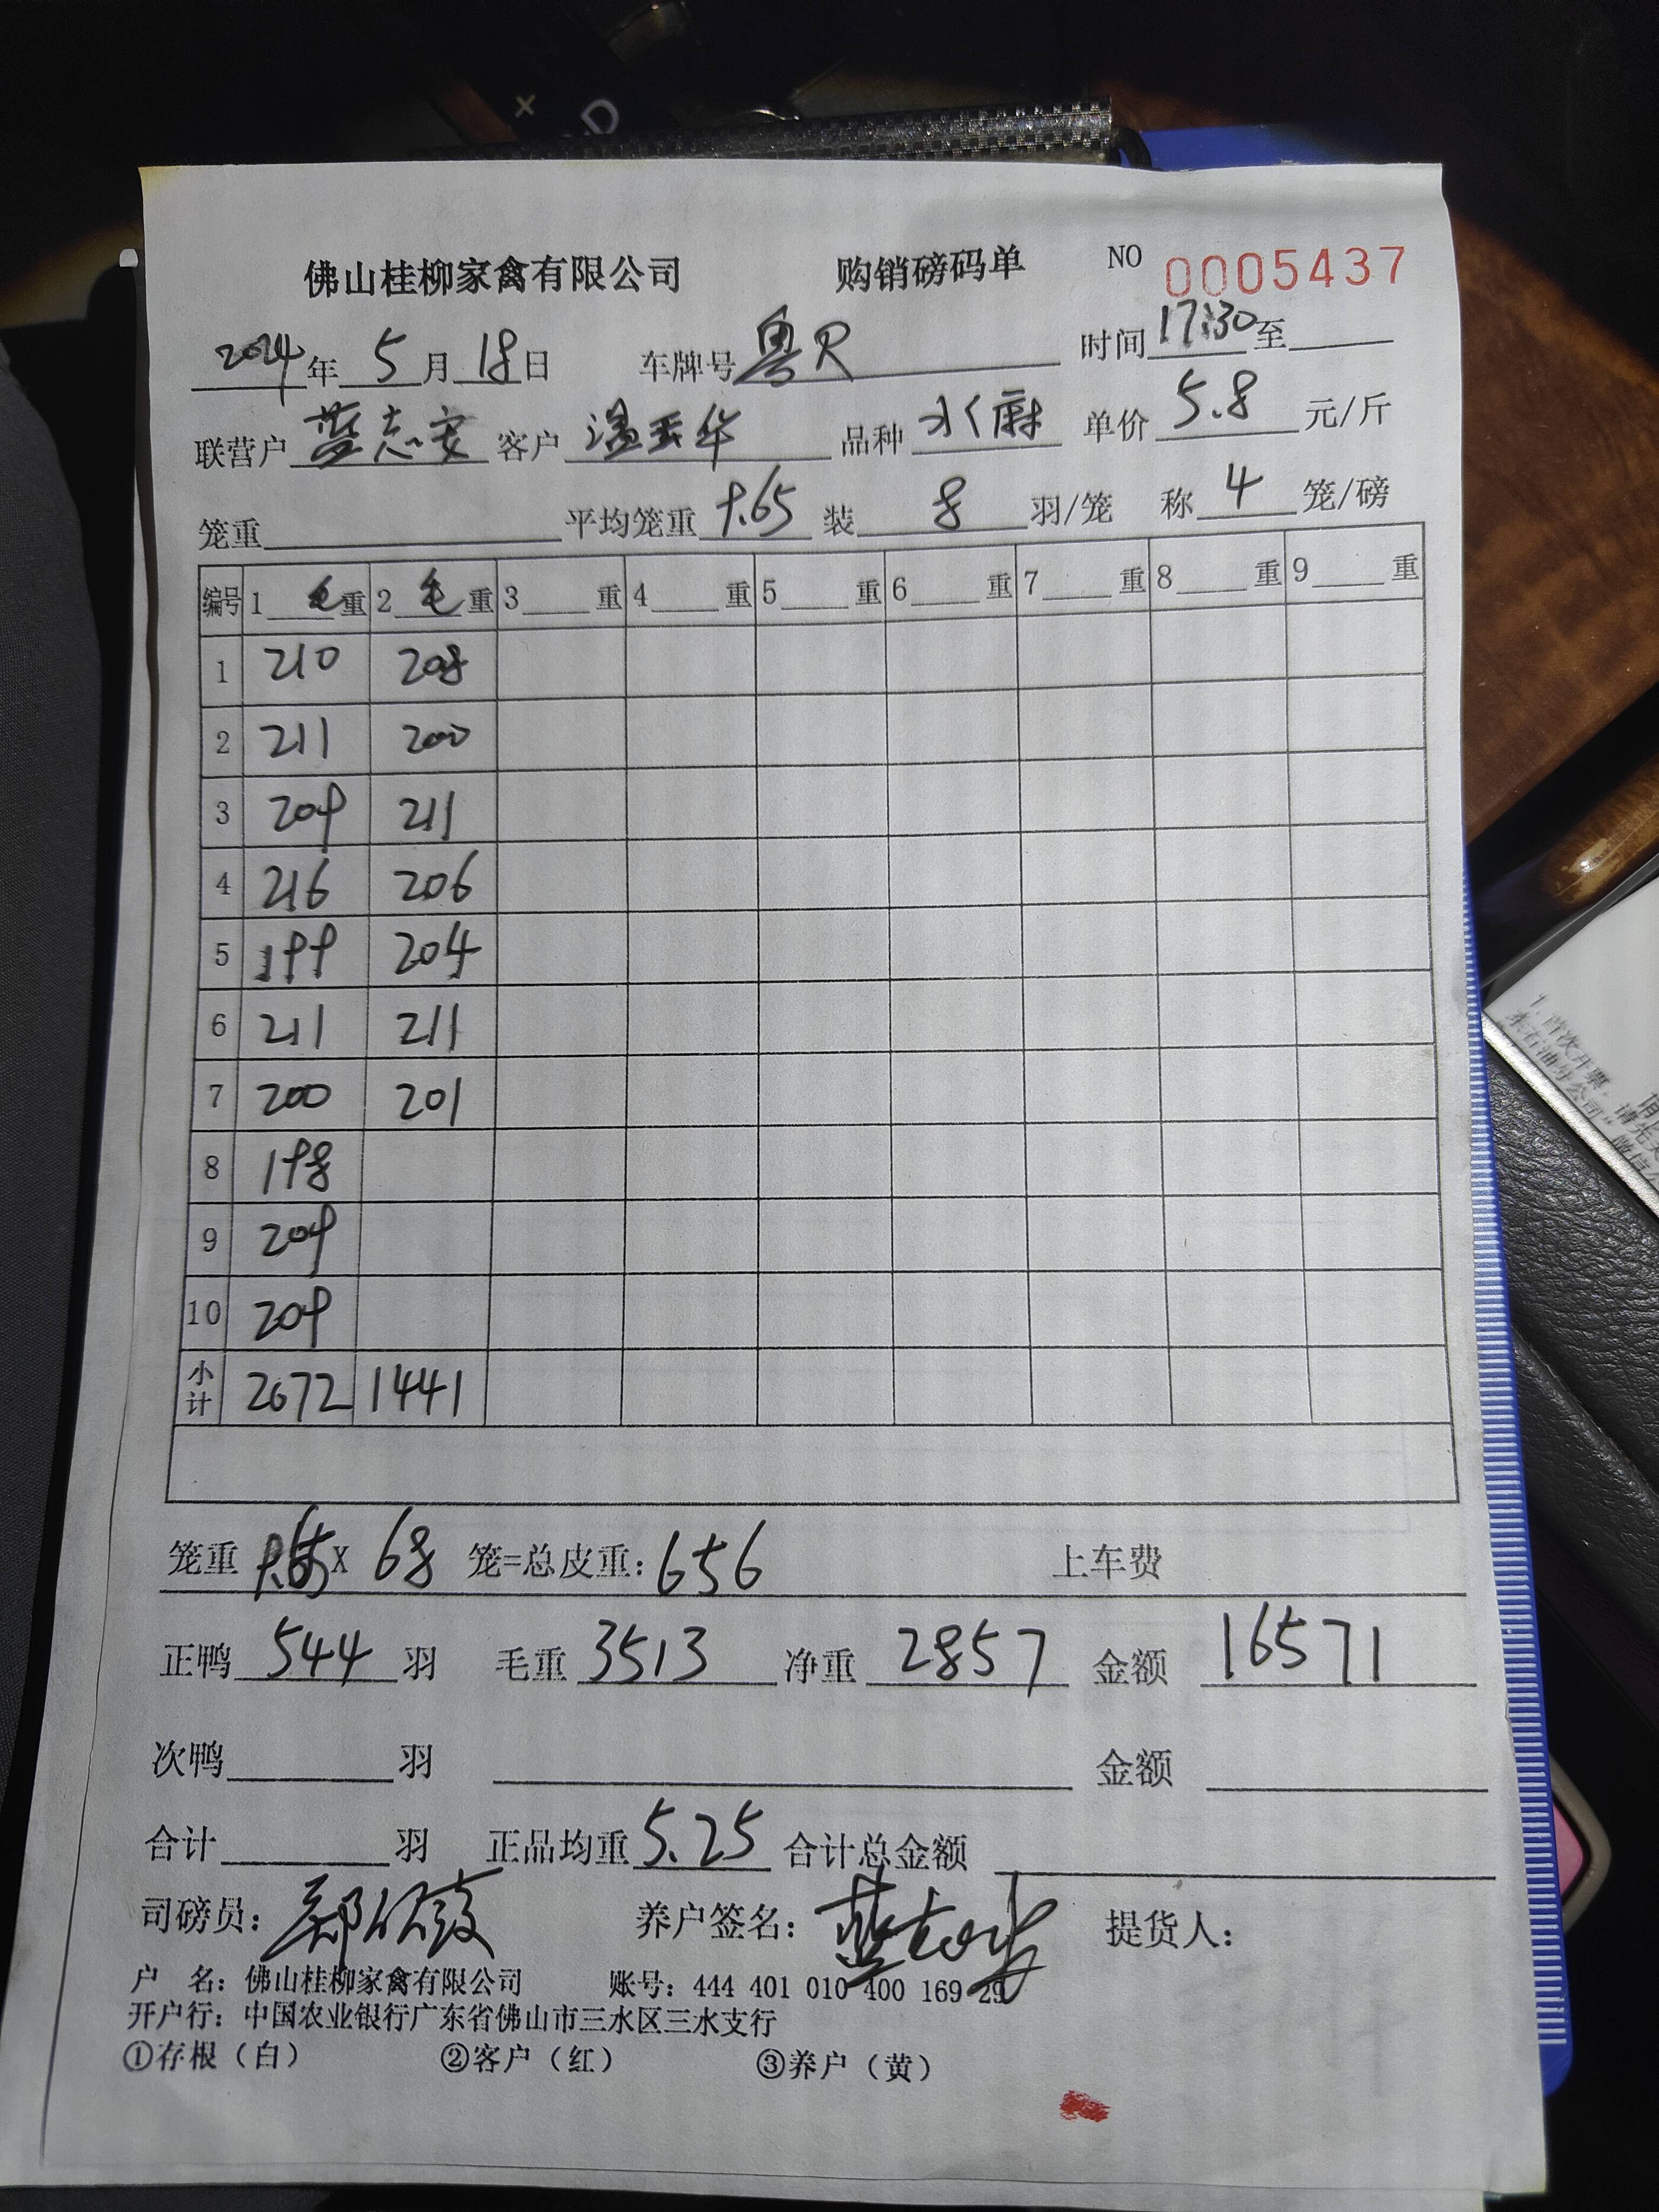 佛山桂柳家禽有限公司 购销磅码单 NO 0005437
2024年5月18日 车牌号 粤R 时间 17:30 至
联营户 蓝志安 客户 温玉华 品种 水麻 单价 5.8 元/斤
笼重 平均笼重 9.65 装 8 羽/笼 称 4 笼/磅
编号 1 毛 重 2 毛 重 3 重 4 重 5 重 6 重 7 重 8 重 9 重
1 210 208
2 211 200
3 209 211
4 216 206
5 199 204
6 211 211
7 200 201
8 198
9 209
10 209
小计 2072 1441
笼重 X 68 笼=总皮重: 656 上车费
正鸭 544 羽 毛重 3513 净重 2857 金额 16571
次鸭 羽 金额
合计 羽 正品均重 5.25 合计总金额
司磅员: 养户签名: 提货人:
户 名: 佛山桂柳家禽有限公司 账号: 444 401 010 400 169 29
开户行: 中国农业银行广东省佛山市三水区三水支行
①存根（白） ②客户（红） ③养户（黄）